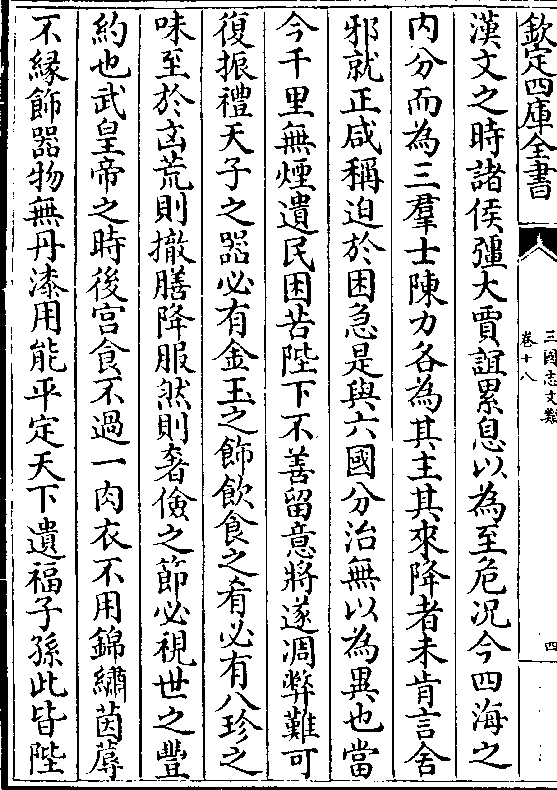 欽定四庫全書
三國志文類
卷十八
四
漢文之時諸侯彊大賈誼累息以為至危况今四海之
内分而為三羣士陳力各為其主其來降者未肯言舍
邪就正咸稱迫於困急是與六國分治無以為異也當
今千里無煙遺民困苦陛下不善留意將遂凋弊難可
復振禮天子之器必有金玉之飾飲食之肴必有八珍之
味至於凶荒則撤膳降服然則奢儉之節必視世之豐
約也武皇帝之時後宫食不過一肉衣不用錦繡茵蓐
不縁飾器物無丹漆用能平定天下遺福子孫此皆陛